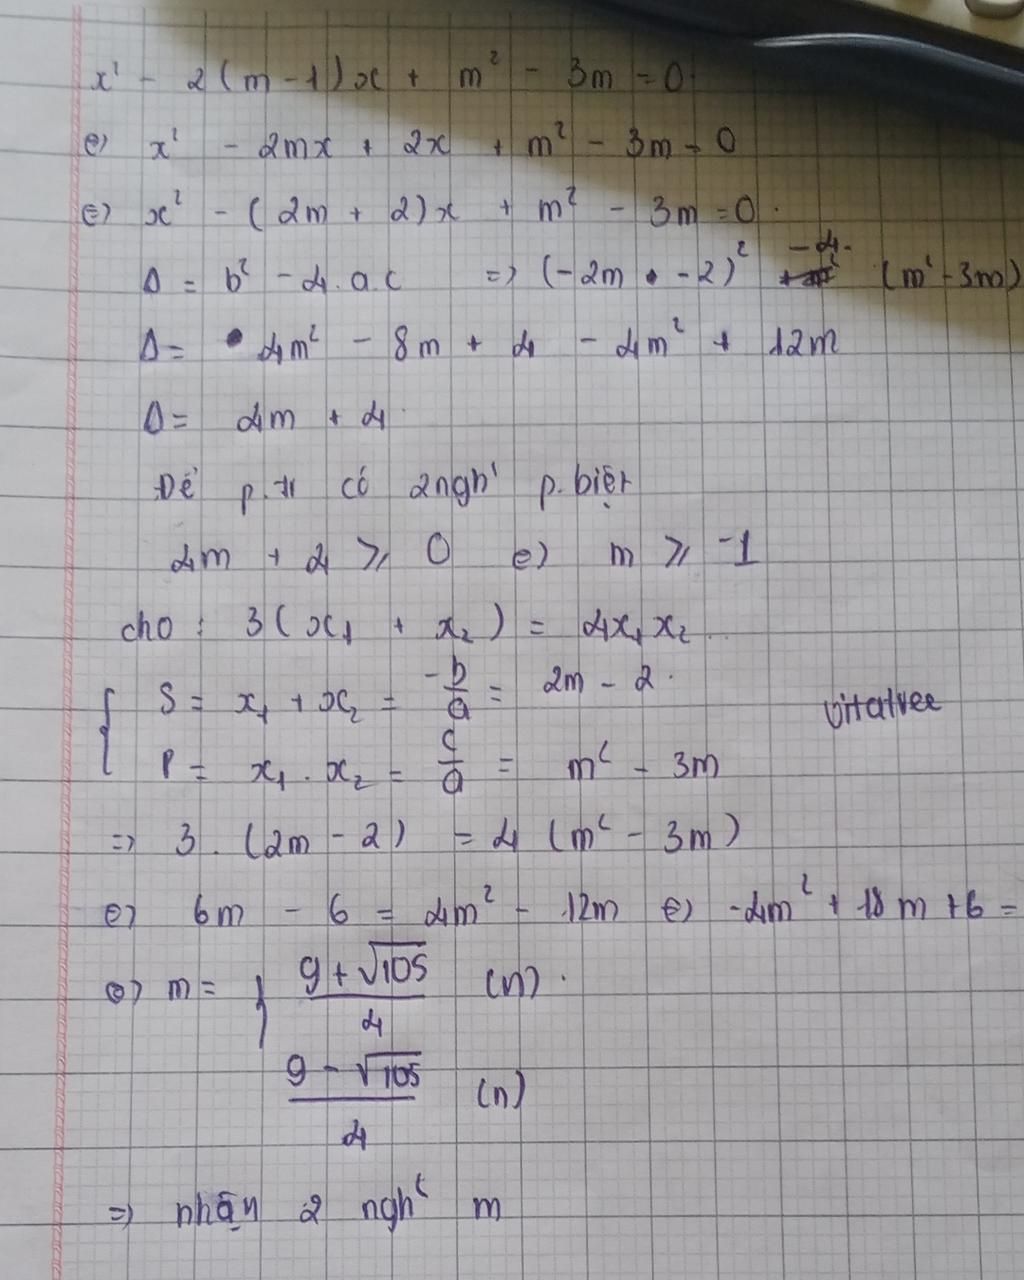 x² - 2(m-1)x + m² - 3m = 0
⇔ x² - 2mx + 2x + m² - 3m = 0
⇔ x² - (2m + 2)x + m² - 3m = 0.
Δ = b² - 4.a.c => (-2m - 2)² - 4. (m² - 3m)
Δ = 4m² - 8m + 4 - 4m² + 12m
Δ = 4m + 4
Để p.tr có 2 ngh' p.biệt
4m + 4 ≥ 0 ⇔ m ≥ -1
cho : 3(x₁ + x₂) = 4x₁x₂
S = x₁ + x₂ = -b/a = 2m - 2.
P = x₁ . x₂ = c/a = m² - 3m
=> 3 . (2m - 2) = 4 (m² - 3m)
⇔ 6m - 6 = 4m² - 12m ⇔ -4m² + 18m + 6 =
⇔ m = { (9 + √105)/4 (n).
(9 - √105)/4 (n)
=> nhận 2 ngh' m